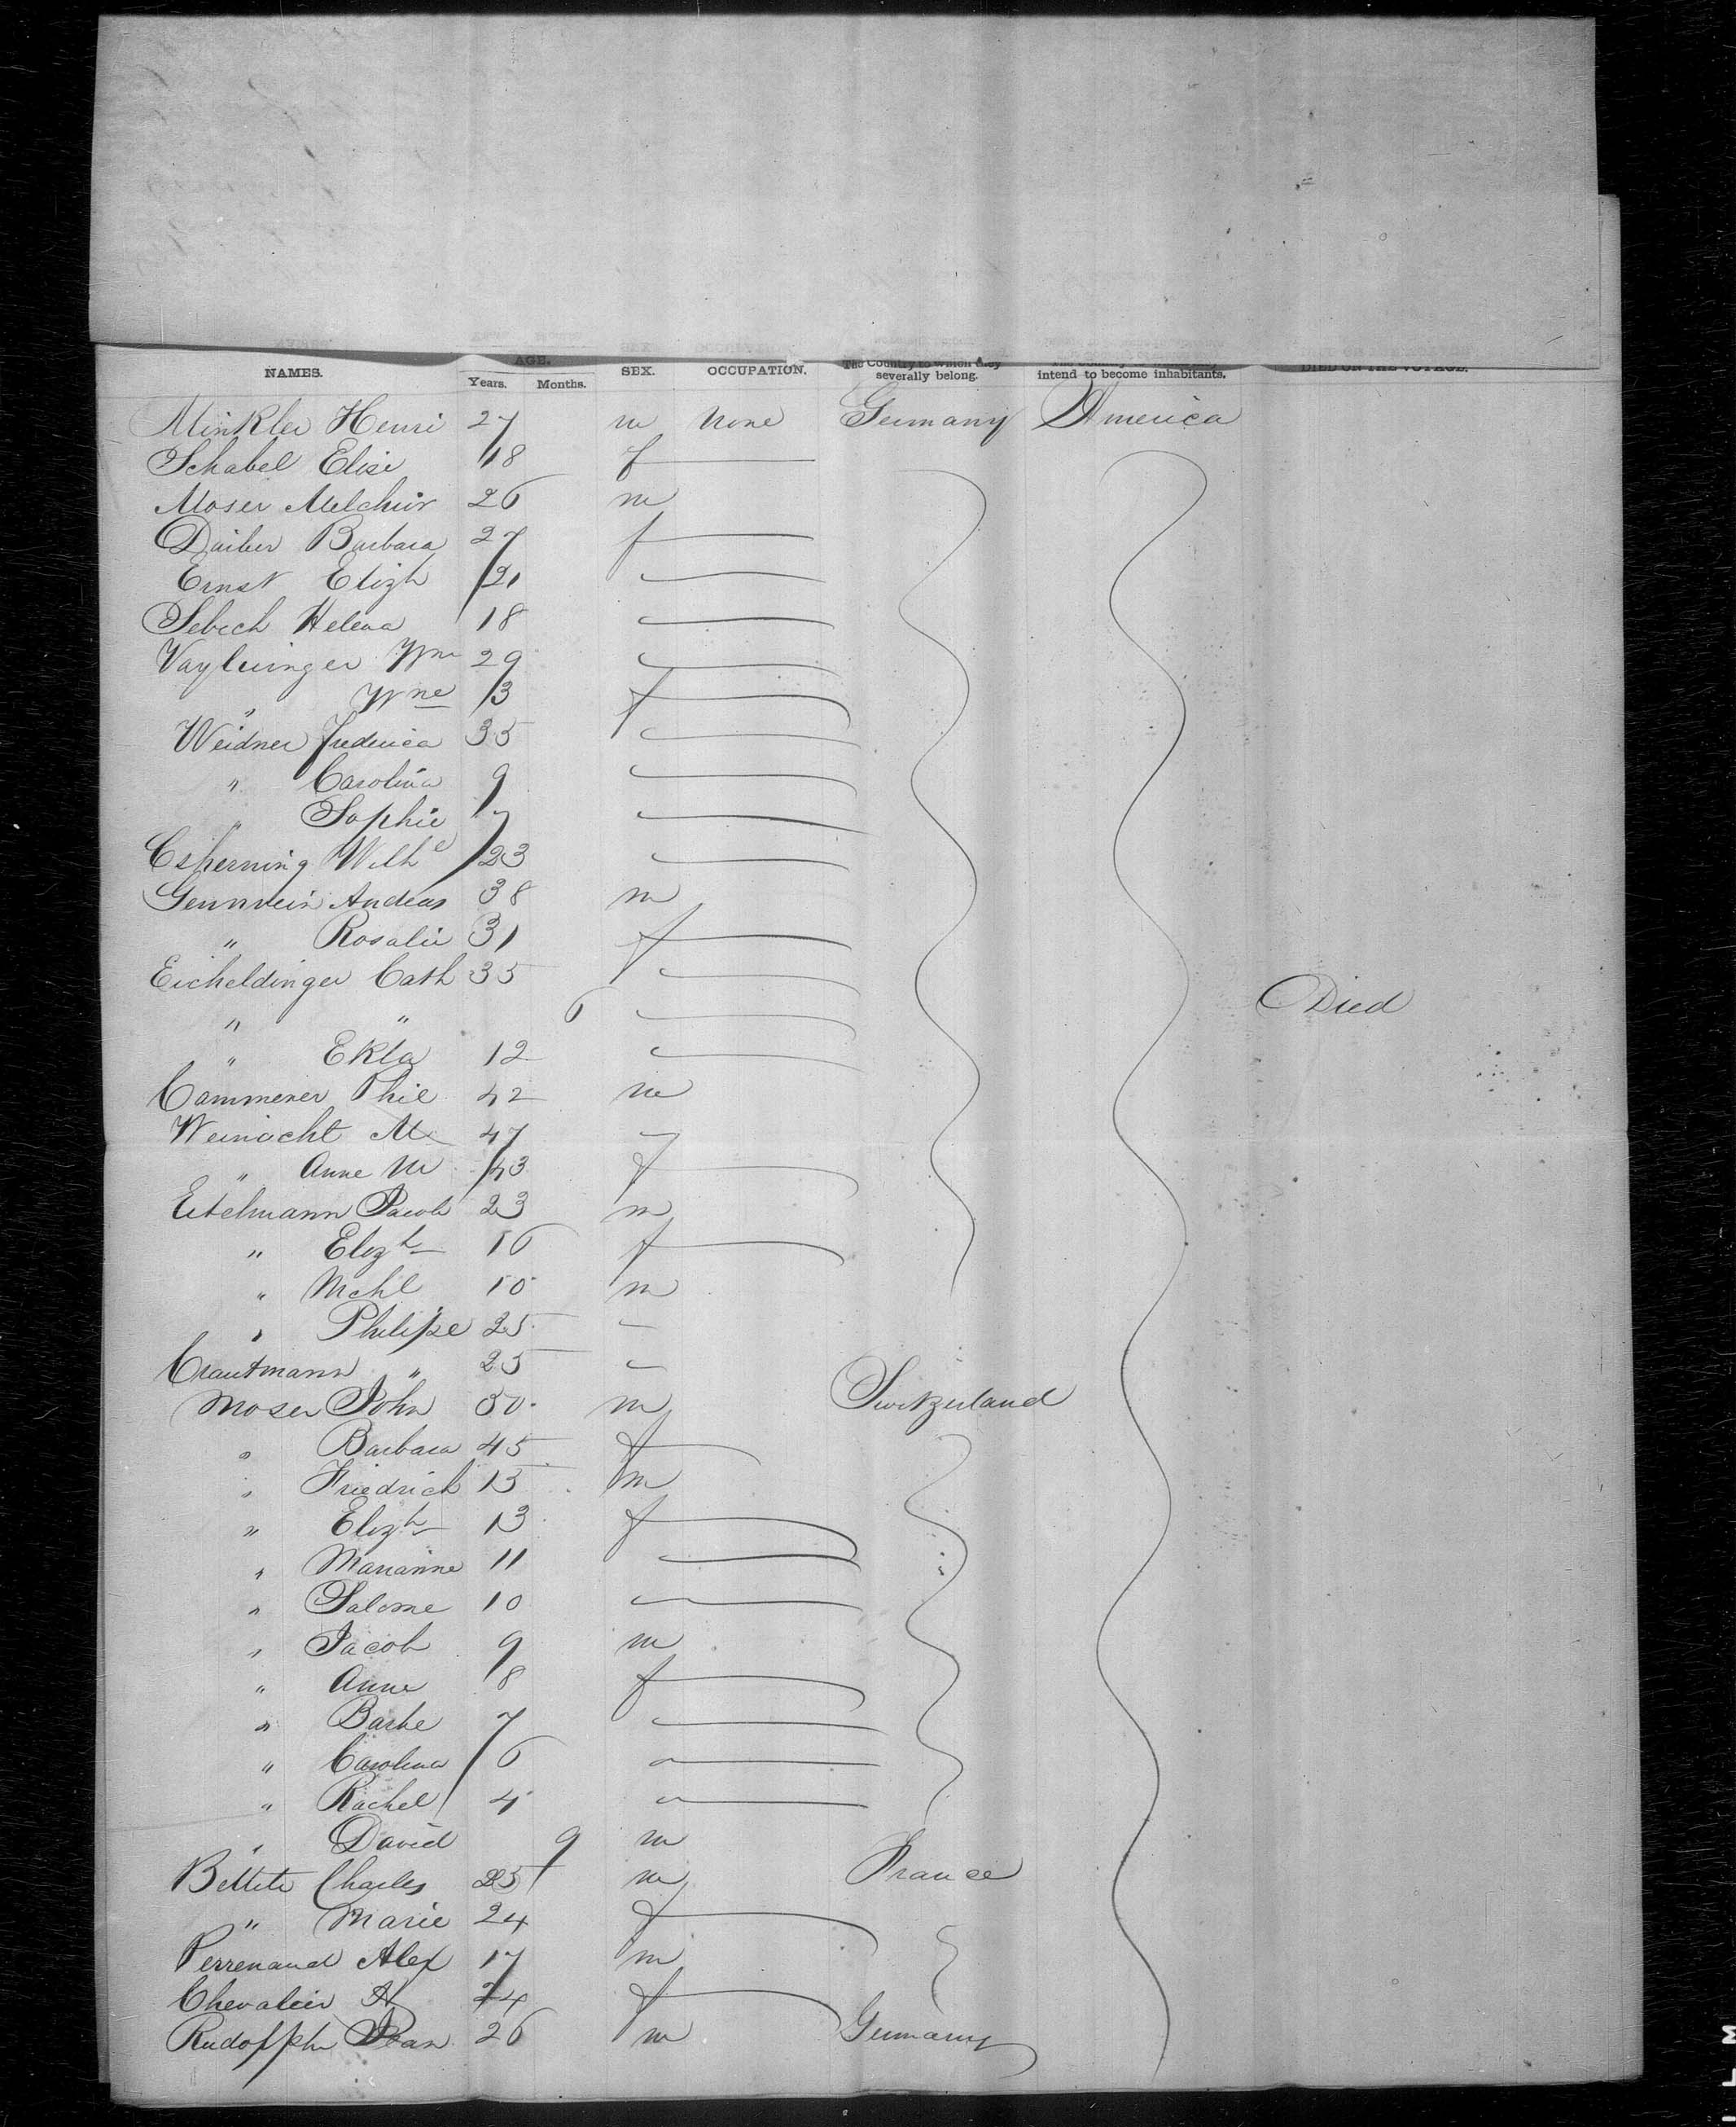 NAMES. AGE. Years. Months. SEX. OCCUPATION. The Country to which they severally belong. intend to become inhabitants. DIED ON THE VOYAGE.
Minkler Henri 27 m None Germany America
Schabel Elise 18 f
Moser Melchior 26 m
Daiber Barbara 27 f
Ernst Elizh 21
Sebech Helena 18
Vayhinger Wm 29
" Wne 13 f
Weidner Frederica 35
" Carolina 9
" Sophie 7
Esherning Wilhe 23
Gennwein Andreas 38 m
" Rosalie 31 f
Eicheldinger Cath 35
" " 6 Died
" Ekla 12
Cammerer Phil 42 m
Weinacht M 47
" Anne M 43 f
Eitelmann Jacob 23 m
" Elizh 16 f
" Mchl 10 m
" Philipe 25
Crautmann " 25
Moser John 50 m Switzerland
" Barbara 45 f
" Friedrich 15 m
" Elizh 13 f
" Marianne 11
" Salome 10
" Jacob 9 m
" Anne 8 f
" Barbe 7
" Carolina 6
" Rachel 4
" David 9 m
Bettete Charles 25 m France
" Marie 24 f
Perrenaud Alex 17 m
Chevalier 24 f
Rudolph Jean 26 m Germany